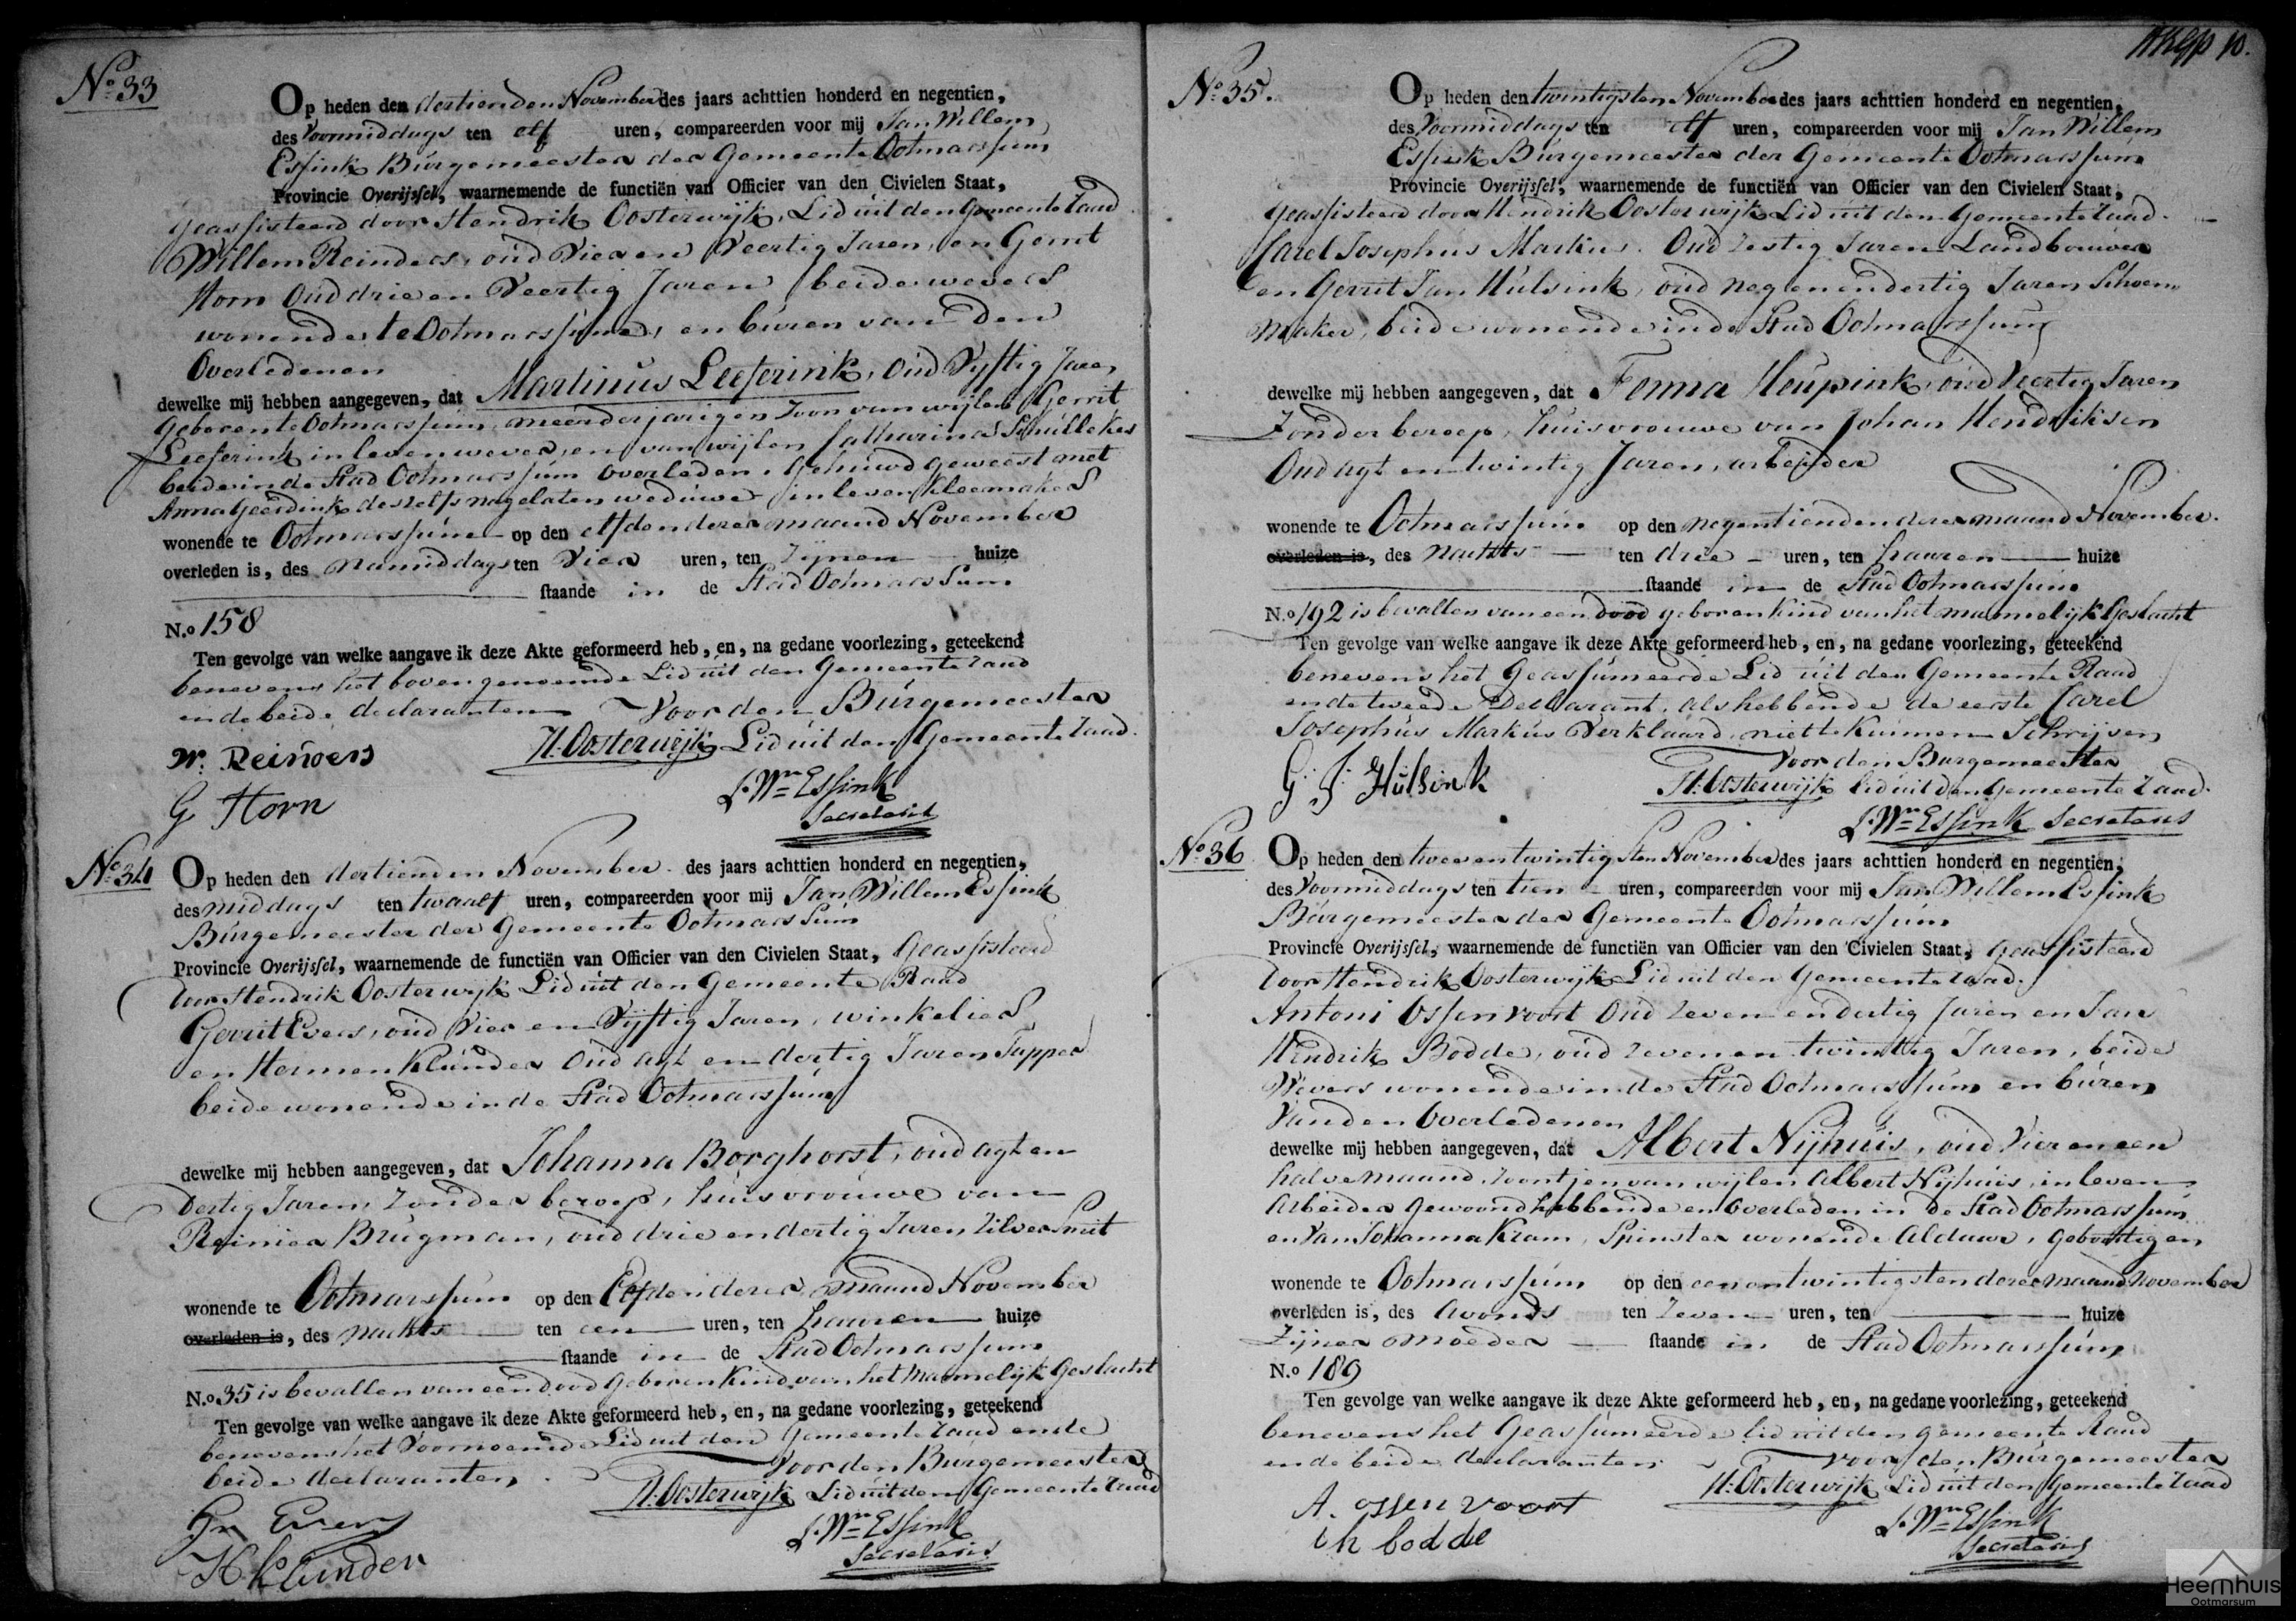 No 33
Op heden den dertienden November des jaars achttien honderd en negentien,
des Voormiddags ten elf uren, compareerden voor mij Jan Willem
Essink Burgemeester der Gemeente Ootmarssum
Provincie Overijssel, waarnemende de functiën van Officier van den Civielen Staat,
geassisteerd door Hendrik Oosterwijk, Lid uit den Gemeente Raad
Willem Reinders, oud Vier en Veertig Jaren, en Gerrit
Horn Oud drie en Veertig Jaren beide wevers
wonende te Ootmarssum, en buren van den
Overledenen
dewelke mij hebben aangegeven, dat Martinus Leeferink, Oud Vyftig Jaren,
Geboren te Ootmarssum, meerderjarigen Zoon van wijlen Gerrit
Leeferink in leven wever, en van wijlen Catharina Schullekes
beide in de Stad Ootmarssum overleden. Gehuwd geweest met
Anna Geerdink deszelfs nagelaten weduwe in leven Kleermaker
wonende te Ootmarssum op den elfden derer maand November
overleden is, des namiddags ten Vier uren, ten Zijnen huize
staande in de Stad Ootmarssum
N.o 158
Ten gevolge van welke aangave ik deze Akte geformeerd heb, en, na gedane voorlezing, geteekend
benevens het bovengenoemde Lid uit den Gemeente raad
en de beide declaranten Voor den Burgemeester
H. Oosterwijk Lid uit den Gemeente raad.
W. Reinders
J. Wm Essink
G Horn
Secretaris
No 34
Op heden den dertienden November des jaars achttien honderd en negentien,
des middags ten twaalf uren, compareerden voor mij Jan Willem Essink
Burgemeester der Gemeente Ootmarssum
Provincie Overijssel, waarnemende de functiën van Officier van den Civielen Staat, Geassisteerd
door Hendrik Oosterwijk Lid uit den Gemeente Raad
Gerrit Evers, oud Vier en Vyftig Jaren, winkelier
en Hermen Klunder Oud agt en dertig Jaren Tapper
beide wonende in de Stad Ootmarssum
dewelke mij hebben aangegeven, dat Johanna Borghorst, oud agt en
Dertig Jaren, Zonder beroep, huisvrouwe van
Reinier Brugman, oud drie en dertig Jaren Zilversmit
wonende te Ootmarssum op den Elfden derer maand November
overleden is, des nachts ten een uren, ten haaren huize
staande in de Stad Ootmarssum
N.o 35 is bevallen van een dood geboren Kind van het Mannelijk Geslacht
Ten gevolge van welke aangave ik deze Akte geformeerd heb, en, na gedane voorlezing, geteekend
benevens het Voornoemde Lid uit den Gemeente raad en de
beide declaranten Voor den Burgemeester
H. Oosterwijk Lid uit den Gemeente raad
Gr Evers
J. Wm Essink
H klunder
Secretaris
No 35.
Op heden den twintigsten November des jaars achttien honderd en negentien,
des Voormiddags ten elf uren, compareerden voor mij Jan Willem
Essink Burgemeester der Gemeente Ootmarssum
Provincie Overijssel, waarnemende de functiën van Officier van den Civielen Staat,
geassisteerd door Hendrik Oosterwijk Lid uit den Gemeente raad.
Carel Josephus Markus. Oud Zestig Jaren Landbouwer
en Gerrit Jan Hulsink, oud negen en dertig Jaren Schoen
maker, beide wonende in de Stad Ootmarssum
dewelke mij hebben aangegeven, dat Fenna Heupink, oud Veertig Jaren
Zonder beroep, huisvrouwe van Johan Hendriksen
Oud agt en twintig Jaren, arbeider
wonende te Ootmarssum op den negentienden derer maand November.
overleden is, des nachts ten drie uren, ten haaren huize
staande in de Stad Ootmarssum
N.o 192 is bevallen van een dood geboren Kind van het mannelijk Geslacht
Ten gevolge van welke aangave ik deze Akte geformeerd heb, en, na gedane voorlezing, geteekend
benevens het Geassumeerde Lid uit den Gemeente Raad
en de tweede Declarant, als hebbende de eerste Carel
Josephus Markus Verklaard niet te kunnen Schrijven
Voor den Burgemeester
G. J. Hulsink
H. Oosterwijk lid uit den Gemeente raad.
J. Wm Essink Secretaris
No 36
Op heden den twee en twintigsten November des jaars achttien honderd en negentien,
des Voormiddags ten tien uren, compareerden voor mij Jan Willem Essink
Burgemeester der Gemeente Ootmarssum
Provincie Overijssel, waarnemende de functiën van Officier van den Civielen Staat, geassisteerd
door Hendrik Oosterwijk Lid uit den Gemeente raad.
Antoni Ossenvoort Oud Zeven en dertig Jaren en Jan
Hendrik Bodde, oud Zeven en twintig Jaren, beide
Wevers wonende in de Stad Ootmarssum en buren
Van den Overledenen
dewelke mij hebben aangegeven, dat Albert Nijhuis, oud Vier en een
halve maand, Zoontjen van wijlen Albert Nijhuis, in leven
Arbeider gewoond hebbende en Overleden in de Stad Ootmarssum
en Van Johanna Kram, Spinster wonende Aldaar, Geboortig en
wonende te Ootmarssum op den een en twintigsten derer maand November
overleden is, des Avonds ten Zeven uren, ten huize
Zijner moeder staande in de Stad Ootmarssum
N.o 189
Ten gevolge van welke aangave ik deze Akte geformeerd heb, en, na gedane voorlezing, geteekend
benevens het Geassumeerde lid uit den gemeente Raad
en de beide declaranten Voor den Burgemeester
H. Oosterwijk Lid uit den Gemeente raad
A. ossenvoort
J. Wm Essink
ih bodde
Secretaris
Heemhuis
Ootmarsum